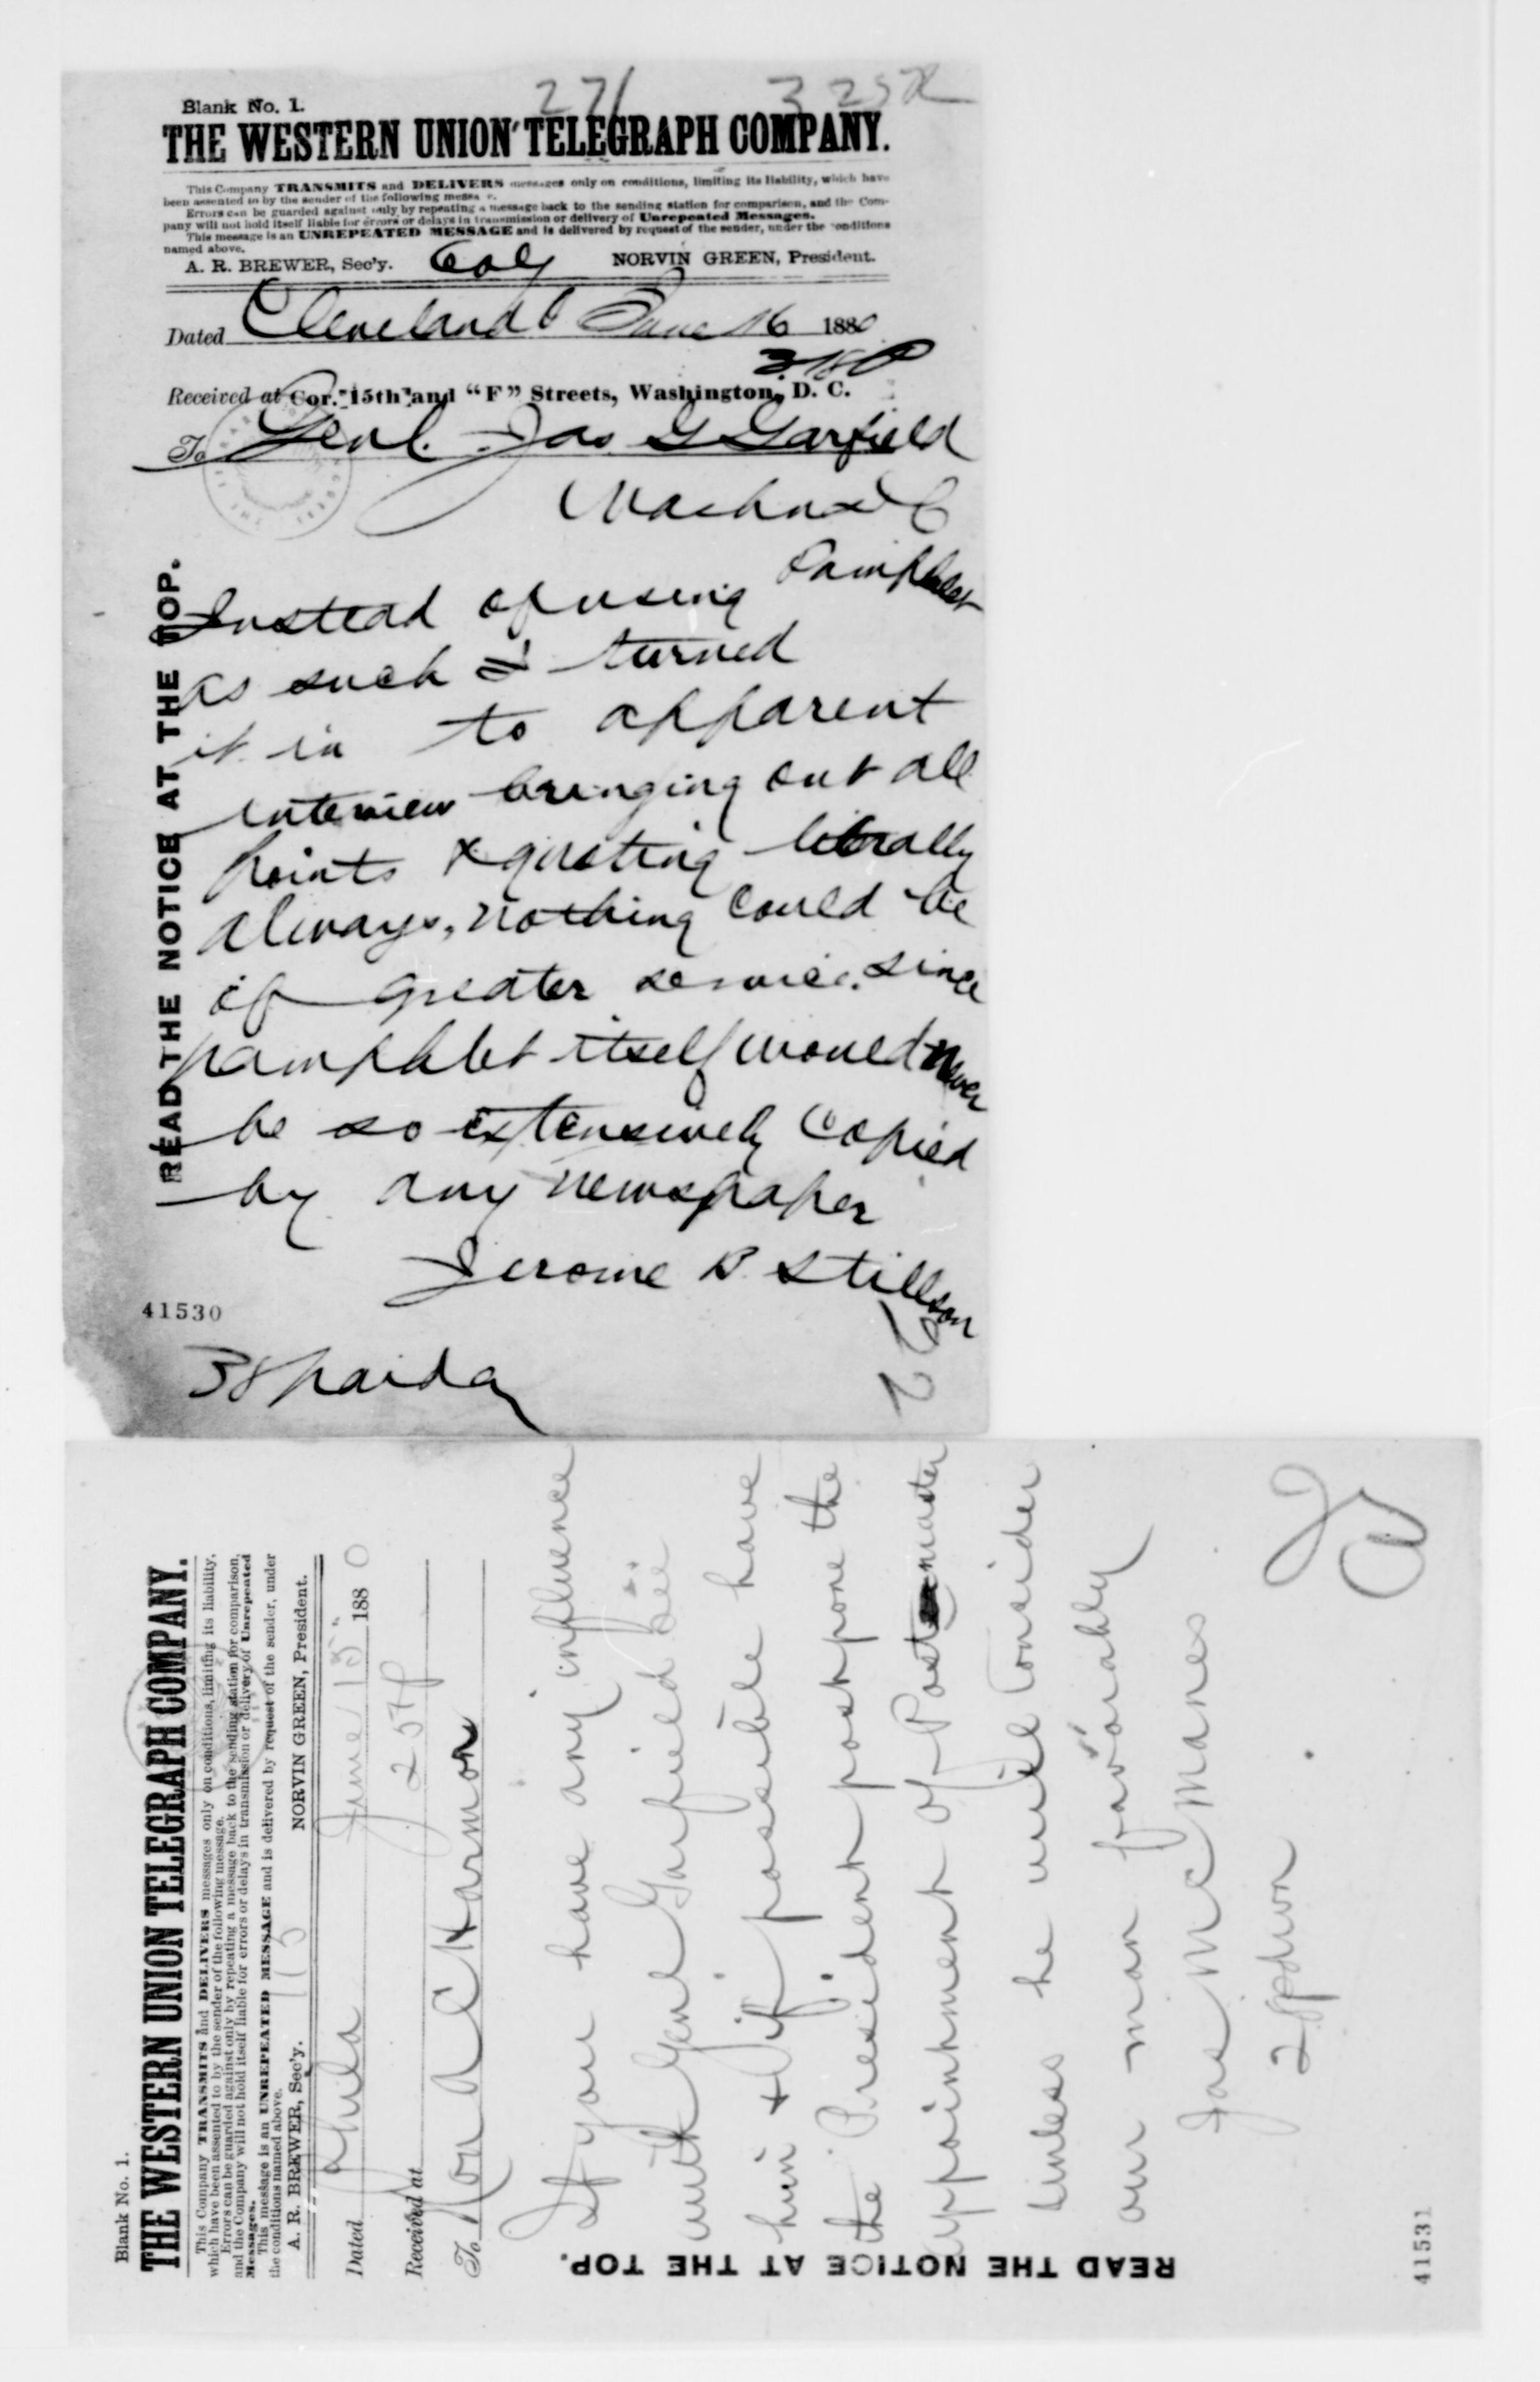 271 325 R
Blank No. 1.
THE WESTERN UNION TELEGRAPH COMPANY.
This Company TRANSMITS and DELIVERS messages only on conditions, limiting its liability, which have
been assented to by the sender of the following message.
Errors can be guarded against only by repeating a message back to the sending station for comparison, and the Com-
pany will not hold itself liable for errors or delays in transmission or delivery of Unrepeated Messages.
This message is an UNREPEATED MESSAGE and is delivered by request of the sender, under the conditions
named above.
A. R. BREWER, Sec'y. NORVIN GREEN, President.
Dated Cleveland O June 16 1880
318 P
Received at Cor. 15th and "F" Streets, Washington, D. C.
To Genl. Jas G Garfield
Washn DC
Instead of using Pamphlet
as such I turned
it in to apparent
interview bringing out all
points & quoting literally
always, nothing could be
of greater service. since
pamphlet itself would never
be so extensively copied
by any newspaper
Jerome B. Stillson
READ THE NOTICE AT THE TOP.
41530
38 paid
Blank No. 1.
THE WESTERN UNION TELEGRAPH COMPANY.
This Company TRANSMITS and DELIVERS messages only on conditions, limiting its liability,
which have been assented to by the sender of the following message.
Errors can be guarded against only by repeating a message back to the sending station for comparison,
and the Company will not hold itself liable for errors or delays in transmission or delivery of Unrepeated
Messages.
This message is an UNREPEATED MESSAGE and is delivered by request of the sender, under
the conditions named above.
A. R. BREWER, Sec'y. NORVIN GREEN, President.
Dated Phila June 15 1880
Received at 257p
To Hon A C Harmon
If you have any influence
with Genl Garfield see
him & if possible have
the President postpone the
appointment of Postmaster
unless he will consider
our man favorably
Jas McManes
READ THE NOTICE AT THE TOP.
41531